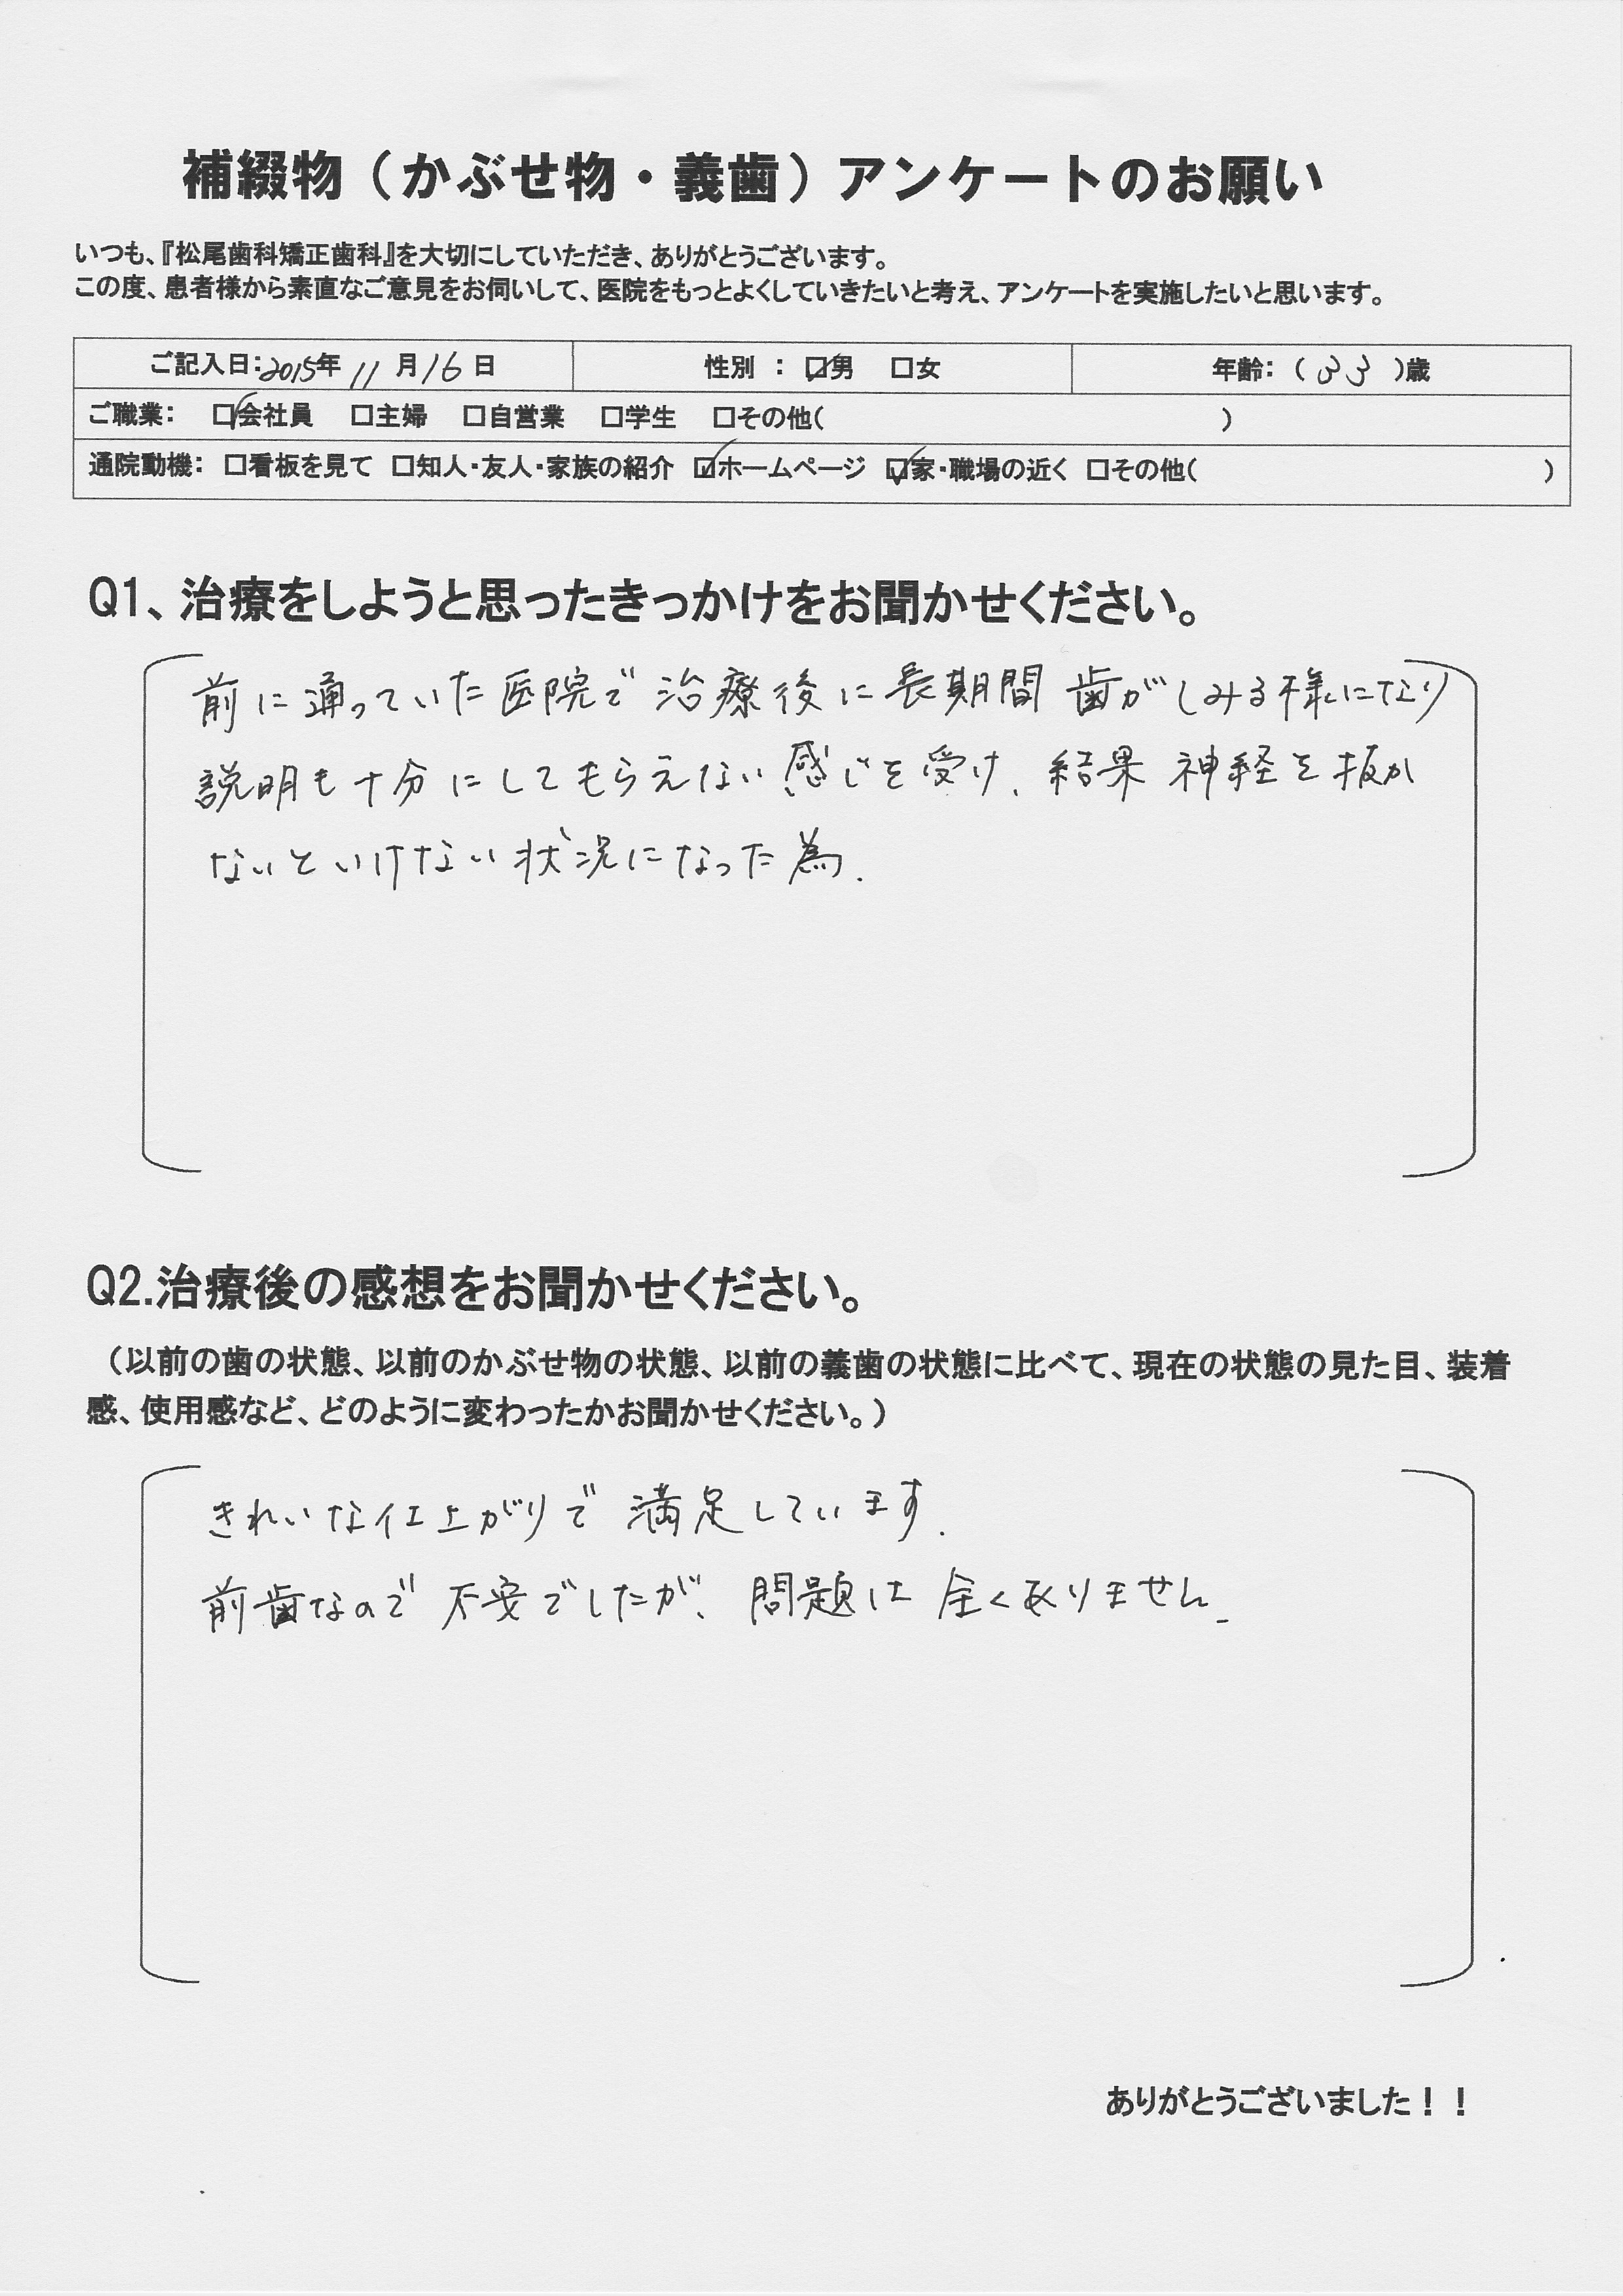 補綴物（かぶせ物・義歯）アンケートのお願い
いつも、『松尾歯科矯正歯科』を大切にしていただき、ありがとうございます。
この度、患者様から素直なご意見をお伺いして、医院をもっとよくしていきたいと考え、アンケートを実施したいと思います。
ご記入日：2015年 11 月 16 日 性別 ： ☑男 □女 年齢：（ 33 ）歳
ご職業： ☑会社員 □主婦 □自営業 □学生 □その他（ ）
通院動機： □看板を見て □知人・友人・家族の紹介 ☑ホームページ ☑家・職場の近く □その他（ ）
Q1、治療をしようと思ったきっかけをお聞かせください。
前に通っていた医院で 治療後に長期間 歯がしみる様になり
説明も十分にしてもらえない感じを受け、結果 神経を抜か
ないといけない状況になった為.
Q2.治療後の感想をお聞かせください。
（以前の歯の状態、以前のかぶせ物の状態、以前の義歯の状態に比べて、現在の状態の見た目、装着
感、使用感など、どのように変わったかお聞かせください。）
きれいな仕上がりで 満足しています.
前歯なので 不安でしたが、問題は 全くありません.
ありがとうございました！！